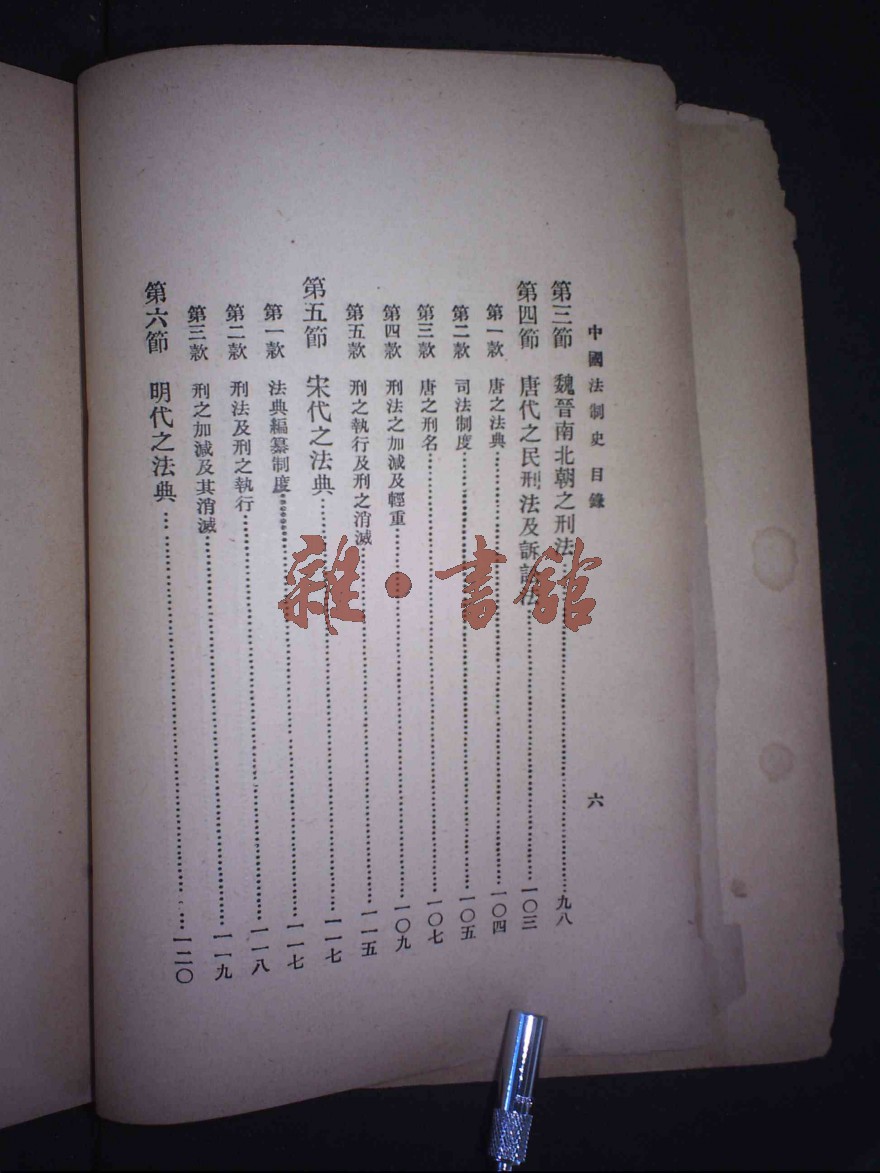 中國法制史 目錄 六
第三節 魏晉南北朝之刑法……九八
第四節 唐代之民刑法及訴訟法……一〇三
第一款 唐之法典……一〇四
第二款 司法制度……一〇五
第三款 唐之刑名……一〇七
第四款 刑法之加減及輕重……一〇九
第五款 刑之執行及刑之消滅……一一五
第五節 宋代之法典……一一七
第一款 法典編纂制度……一一七
第二款 刑法及刑之執行……一一八
第三款 刑之加減及其消滅……一一九
第六節 明代之法典……一二〇
雜·書館